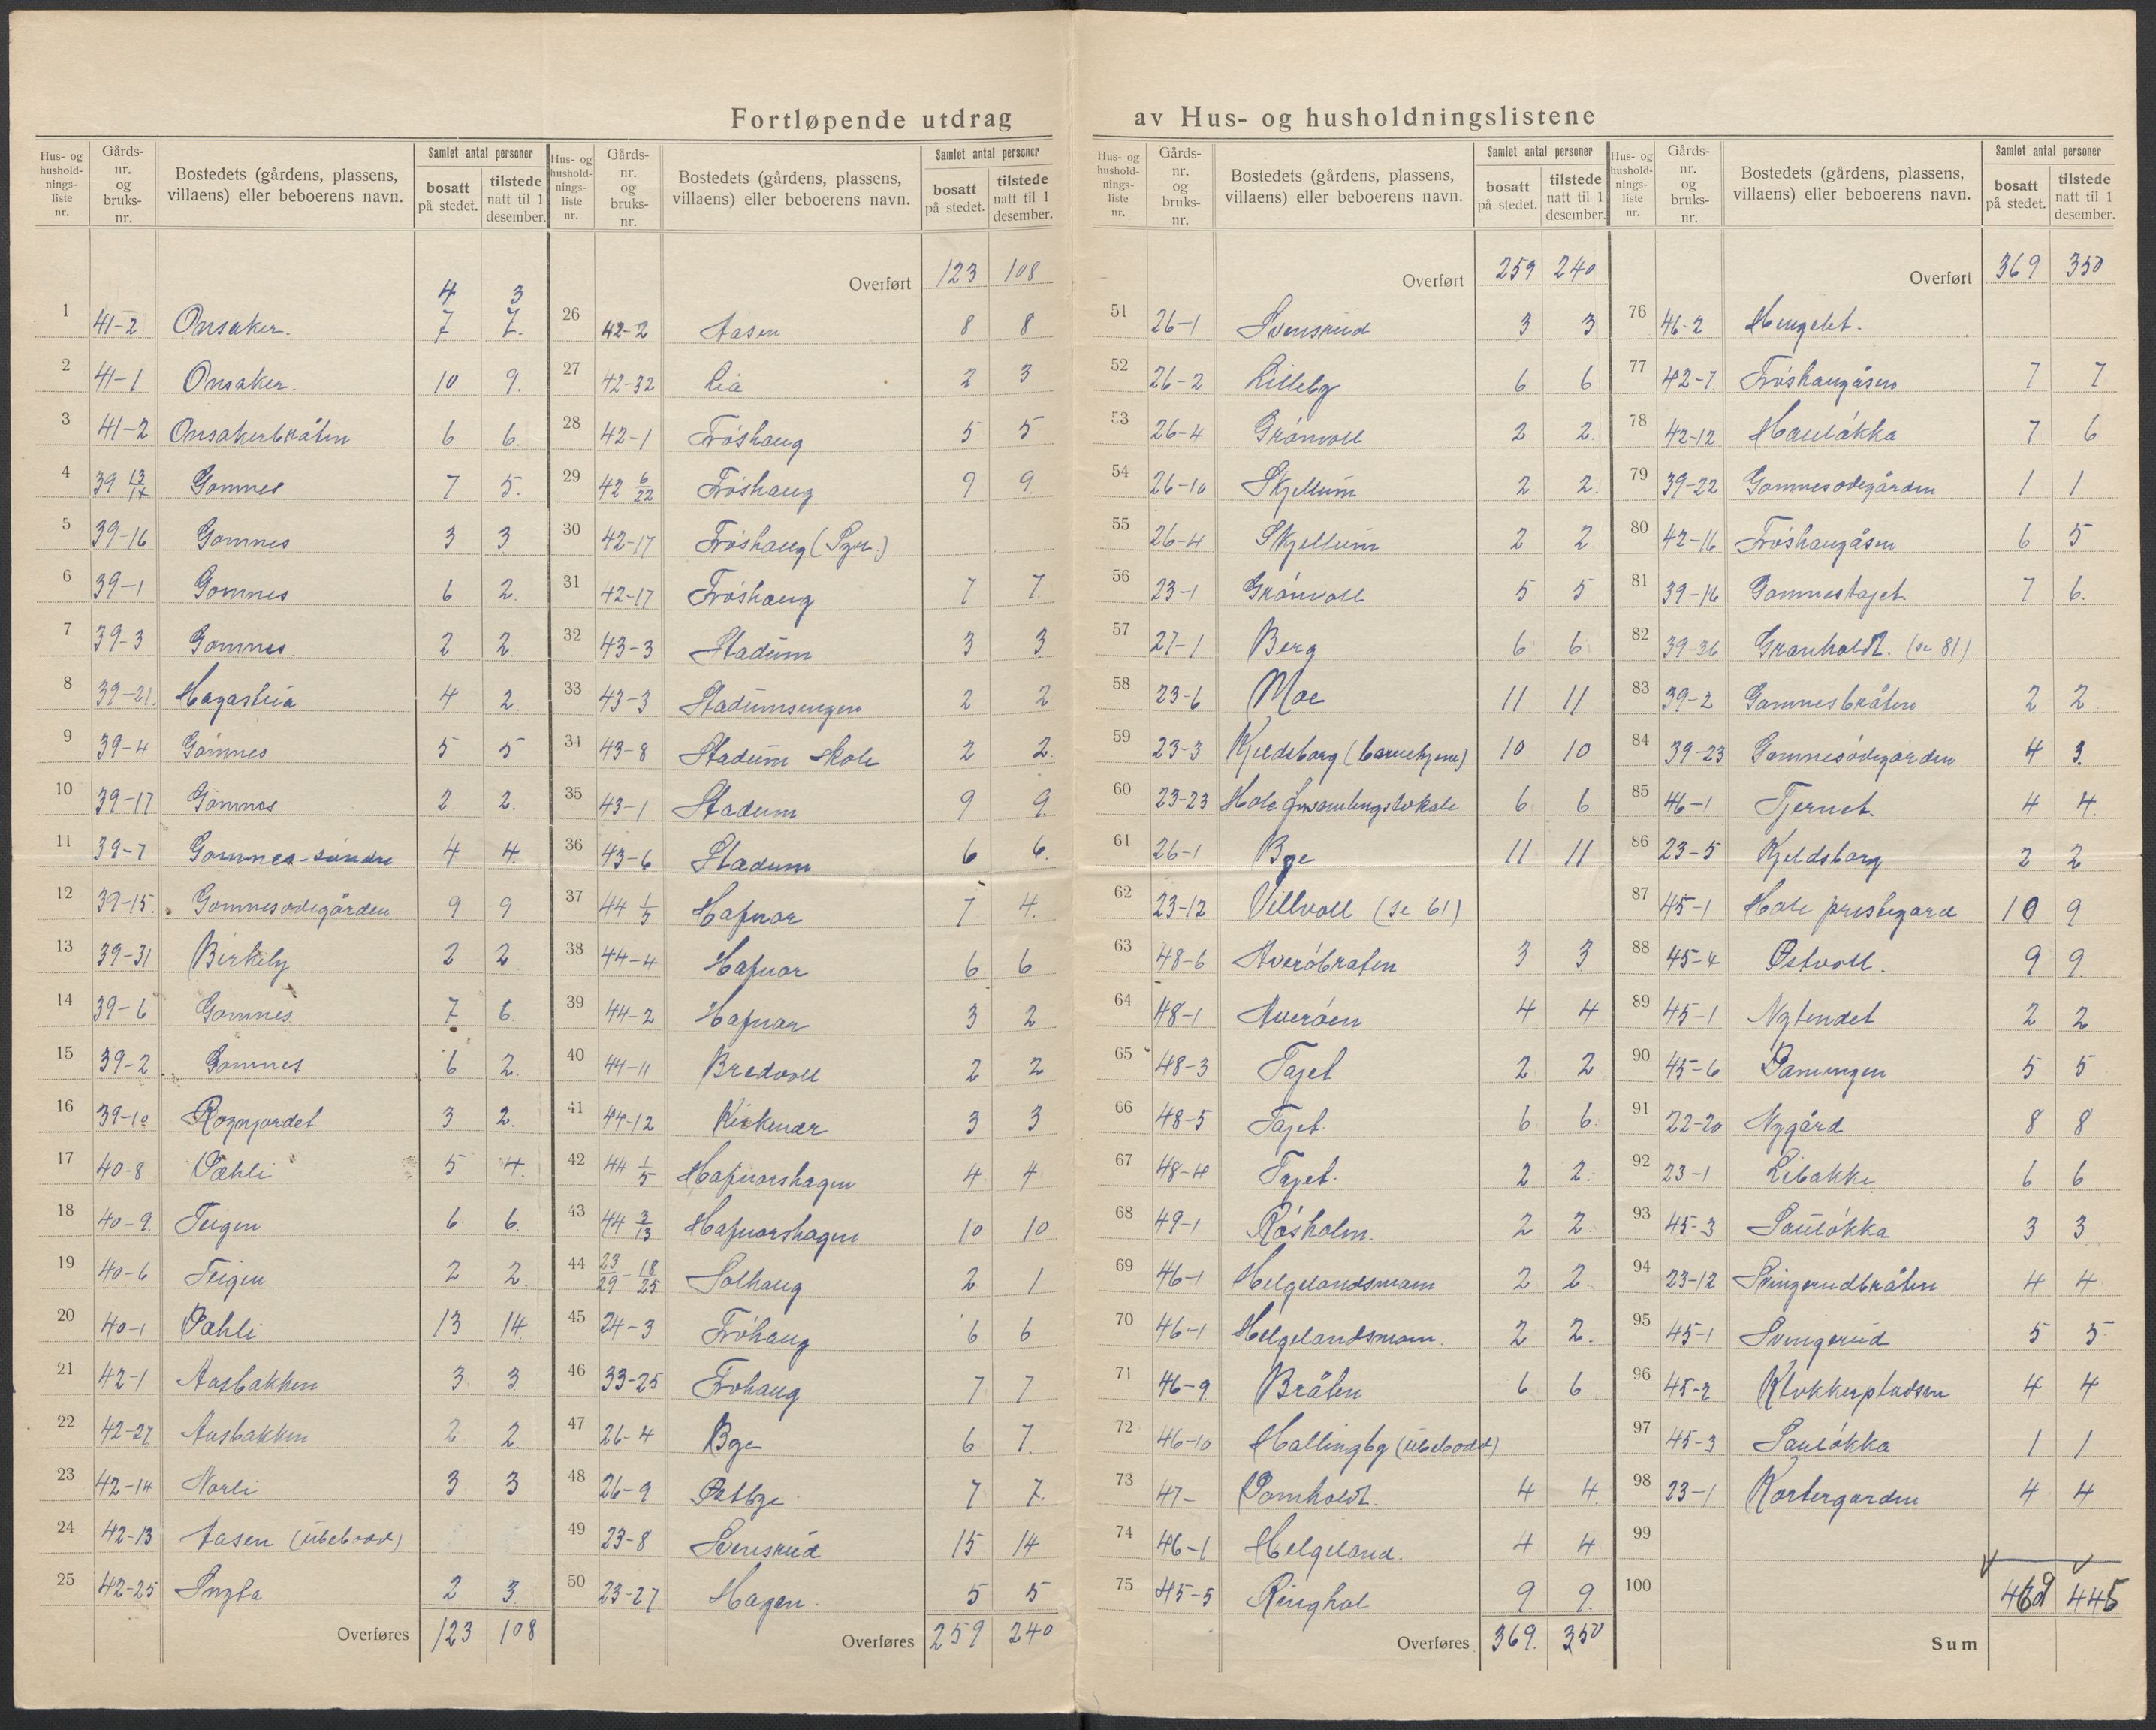 Fortløpende utdrag av Hus- og husholdningslistene
Hus- og husholdnings- liste nr. | Gårds- nr. og bruks- nr. | Bostedets (gårdens, plassens, villaens) eller beboerens navn. | Samlet antal personer | bosatt på stedet. | tilstede natt til 1 desember.
4 3
1 41-2 Onsaker. 7 7.
2 41-1 Onsaker. 10 9.
3 41-2 Onsakerbråten 6 6.
4 39 13/14 Gomnes 7 5.
5 39-16 Gomnes 3 3
6 39-1 Gomnes 6 2.
7 39-3 Gomnes. 2 2.
8 39-21. Hagaslia 4 2.
9 39-4 Gomnes 5 5
10 39-17 Gomnes 2 2.
11 39-7 Gomnes-søndre 4 4.
12 39-15. Gomnesødegården 9 9
13 39-31 Birkily 2 2
14 39-6 Gomnes 7 6.
15 39-2 Gomnes 6 2.
16 39-10 Rognjordet 3 2.
17 40-8 Pæhli 5 4.
18 40-9. Teigen 6 6.
19 40-6 Teigen 2 2.
20 40-1 Pæhli 13 14
21 42-1 Aasbakken 3 3
22 42-27 Aasbakken 2 2.
23 42-14 Norli 3 3
24 42-13 Aasen (ubebodd)
25 42-25 2 3
Overføres 123 108
Hus- og husholdnings- liste nr. | Gårds- nr. og bruks- nr. | Bostedets (gårdens, plassens, villaens) eller beboerens navn. | Samlet antal personer | bosatt på stedet. | tilstede natt til 1 desember.
Overført 123 108
26 42-2 Aasen 8 8
27 42-32 Lia 2 3
28 42-1 Frøshaug 5 5
29 42 6/22 Frøshaug 9 9.
30 42-17 Frøshaug
31 42-17 Frøshaug 7 7.
32 43-3 Stadum 3 3
33 43-3 Stadumsengen 2 2
34 43-8 Stadum skole 2 2.
35 43-1 Stadum 9 9.
36 43-6 Stadum 6 6.
37 44 1/5 Hafnor 7 4.
38 44-4 Hafnor 6 6
39 44-2 Hafnor 3 2
40 44-11 Bredvoll 2 2
41 44-12 Kirkenær 3 3
42 44 1/5 Hafnorshagen 4 4
43 44 3/13 Hafnorshagen 10 10
44 23/29 - 18/25 Solhaug 2 1
45 24-3 Frøhaug 6 6
46 33-25 Frøhaug 7 7
47 26-4 Bye 6 7.
48 26-9 Østbye 7 7.
49 23-8 Svensrud 15 14
50 23-27 Hagen. 5 5
Overføres 259 240
Hus- og husholdnings- liste nr. | Gårds- nr. og bruks- nr. | Bostedets (gårdens, plassens, villaens) eller beboerens navn. | Samlet antal personer | bosatt på stedet. | tilstede natt til 1 desember.
Overført 259 240
51 26-1 Svensrud 3 3
52 26-2 Lilleby 6 6
53 26-4 Grønvoll 2 2.
54 26-10 Skjellum 2 2.
55 26-4 Skjellum 2 2
56 23-1 Grønvoll 5 5
57 27-1 Berg 6 6
58 23-6 Moe 11 11
59 23-3 Kjeldsborg (barnehjem) 10 10
60 23-23 Hole forsamlingslokale 6 6
61 26-1 Bye 11 11
62 23-12 Villvoll (se 61)
63 48-6 Averøbråten 3 3
64 48-1 Averøen 4 4
65 48-3 Tajet 2 2
66 48-5 Tajet. 6 6.
67 48-4 Tajet. 2 2.
68 49-1 Røsholm. 2 2.
69 46-1 Helgelandsmoen 2 2.
70 46-1 Helgelandsmoen. 2 2.
71 46-9 Bråten 6 6
72 46-10 Hallingby (ubebodd)
73 47- Domholdt. 4 4.
74 46-1 Helgeland. 4 4
75 45-5 Ringhol 9 9.
Overføres 369. 350
Hus- og husholdnings- liste nr. | Gårds- nr. og bruks- nr. | Bostedets (gårdens, plassens, villaens) eller beboerens navn. | Samlet antal personer | bosatt på stedet. | tilstede natt til 1 desember.
Overført 369 350
76 46-2 Hengslet.
77 42-7 Frøshaugåsen 7 7
78 42-12 Hauløkka 7 6
79 39-22 Gomnesødegården 1 1
80 42-16 Frøshaugåsen 6 5
81 39-16 Gomnestajet. 7 6.
82 39-36 Granholdt. (se 81.)
83 39-2 Gomnesbråten 2 2
84 39-23 Gomnesødegarden 4 3.
85 46-1 Tjernet. 4 4.
86 23-5 Kjeldsborg 2 2
87 45-1 Hole prestegård 10 9
88 45-4 Østvoll. 9 9.
89 45-1 Nylendet 2 2
90 45-6 5 5
91 22-20 Nygård 8 8
92 23-1 Libakke 6 6
93 45-3 Sauløkka 3 3
94 23-12 Svingerudbråten 4 4
95 45-1 Svingerud 5 5
96 45-2 Klokkerpladsen 4 4
97 45-3 Sauløkka 1 1
98 23-1 Kortergarden 4 4
99
100
469 445
Sum